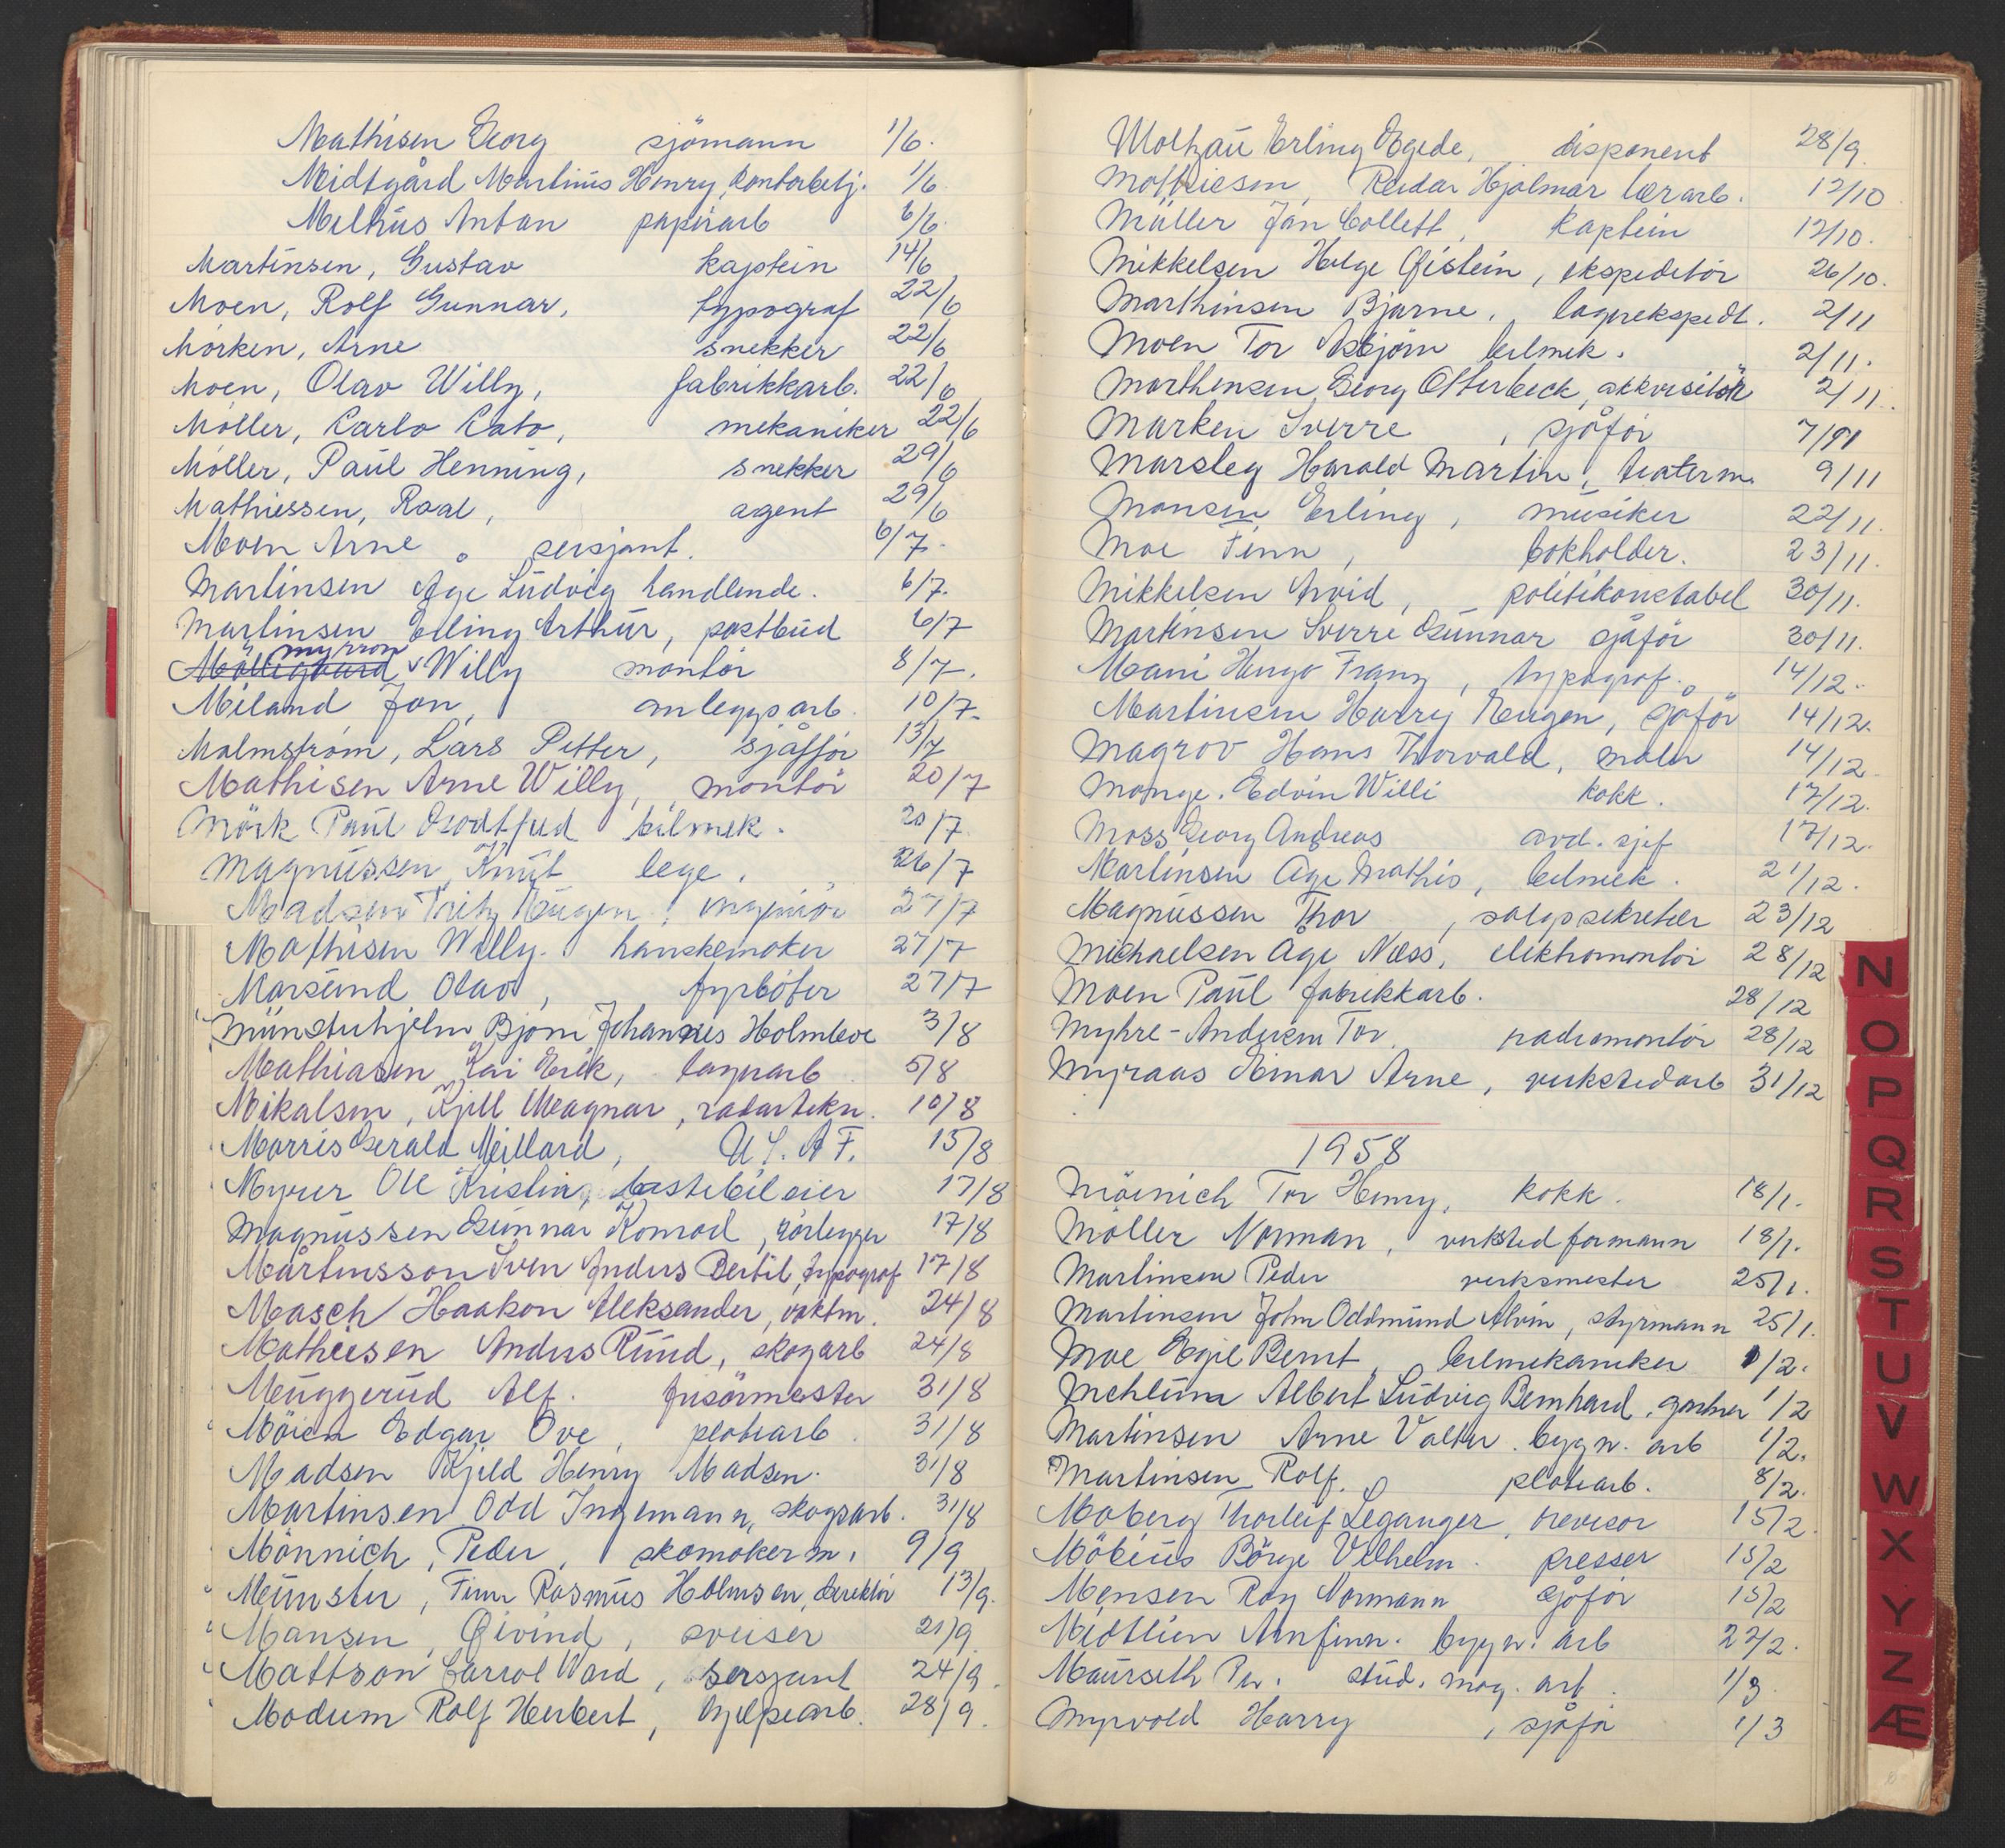 Mathisen Georg sjömann 1/6.
Midtgård Martinus Henry, kontorbetj. 1/6
Melhus Anton papirarb 6/6.
Martinsen, Gustav kaptein 14/6
Moen, Rolf Gunnar, typograf 22/6
Mörken, Arne snekker 22/6
Moen, Olav Willy, fabrikkarb. 22/6
Möller, Carlo Cato, mekaniker 22/6
Möller, Paul Henning, snekker 29/6
Mathiessen, Roal, agent 29/6
Moen Arne, sersjant. 6/7.
Martinsen Åge Ludvig handlende. 6/7.
Martinsen Erling Arthur, postbud 6/7
myrron
Möllegaard v Willy montör 8/7.
Miland Jon, anleggsarb. 10/7.
Malmström, Lars Petter, sjåfför 13/7
Mathisen Arne Willy, montör 20/7
Mörk Paul Godtfred bilmek. 20/7
Magnussen, Knut lege. 26/7
Madsen Fritz Eugen, ingeniör 27/7
Mathisen Willy. hanskemaker 27/7
Marsund Olav, fyrböter 27/7
Münsterhjelm Bjørn Johannes Holmboe 3/8
Mathiasen Kai Erik, lagerarb 5/8
Mikalsen, Kjell Magnar, radartekn. 10/8
Morris Gerald Millard, U.S.A.F. 15/8
Myrer Ole Kristian, lastebileier 17/8
Magnussen Gunnar Konrad, rörlegger 17/8
Mårtensson Sven Anders Bertil, typograf 17/8
Masch Haakon Aleksander, vaktm. 24/8
Mathiesen Anders Ruud, skogarb 24/8
Muggerud Alf. frisörmester 31/8
Möien Edgar Ove, platearb. 31/8
Madsen Kjeld Henry Madsen. 31/8
Martinsen Odd Ingemann, skogsarb. 31/8
Mönnich, Peder, skomakerm. 9/9
Münster, Finn Rasmus Holmsen, direktör 13/9.
Mansen, Øivind, sveiser 21/9.
Mattson Carrol Ward, sersjant 24/9.
Modum Rolf Herbert, hjelpearb. 28/9.
Molzau Erling Egede, disponent 28/9.
Mathiesen, Reidar Hjalmar lærarb. 12/10
Müller Jan Collett, kaptein 12/10.
Mikkelsen Helge Øistein, ekspeditör 26/10.
Marthinsen Bjarne, lagerekspedt. 2/11
Moen Tor Asbjörn bilmek. 2/11.
Marthensen, Georg Otterbeck, akkvisitör 2/11.
Marken Sverre, sjåför 7/11
Marsleg Harald Martin, teaterm. 9/11
Monsen Erling, musiker 22/11.
Moe Finn, bokholder. 23/11.
Mikkelsen Arvid, politikonstabel 30/11.
Martinsen Sverre Gunnar sjåför 30/11.
Mani Hugo Franz, typograf. 14/12.
Martinsen Harry Eugen, sjåför 14/12.
Magrov Hans Thorvald, maler 14/12.
Monge. Edvin Willi kokk. 17/12.
Moss Georg Andreas avd. sjef 17/12.
Martinsen Åge Mathis, bilmek. 21/12.
Magnussen Thor, salgssekretær 23/12
Michaelsen Åge Næss, elektromontör 28/12
Moen Paul fabrikkarb. 28/12
Myhre-Andersen Tor. radiomontör 28/12
Myraas Einar Arne, verkstedarb 31/12
1958
Möinich Tor Henry, kokk. 18/1.
Möller Norman, verkstedformann 18/1.
Martinsen Peder verksmester 25/1.
Martinsen John Oddmund Alvin, styrmann 25/1.
Moe Egil Bernt, bilmekaniker 1/2.
Mehlum Albert Ludvig Bernhard, gartner 1/2
Martinsen Arne Valter. bygn. arb 1/2.
Martinsen Rolf. platearb. 8/2.
Moberg Thorleif Leganger, revisor 15/2.
Möbius Börge Vilhelm. presser 15/2
Mensen Roy Normann sjåför 15/2
Midtlien Arnfinn. bygn. arb 22/2.
Maurseth Per. stud. mag. art. 1/3
Myrvold Harry, sjåför 1/3
N
O
P
Q
R
S
T
U
V
W
X
Y
Z
Æ